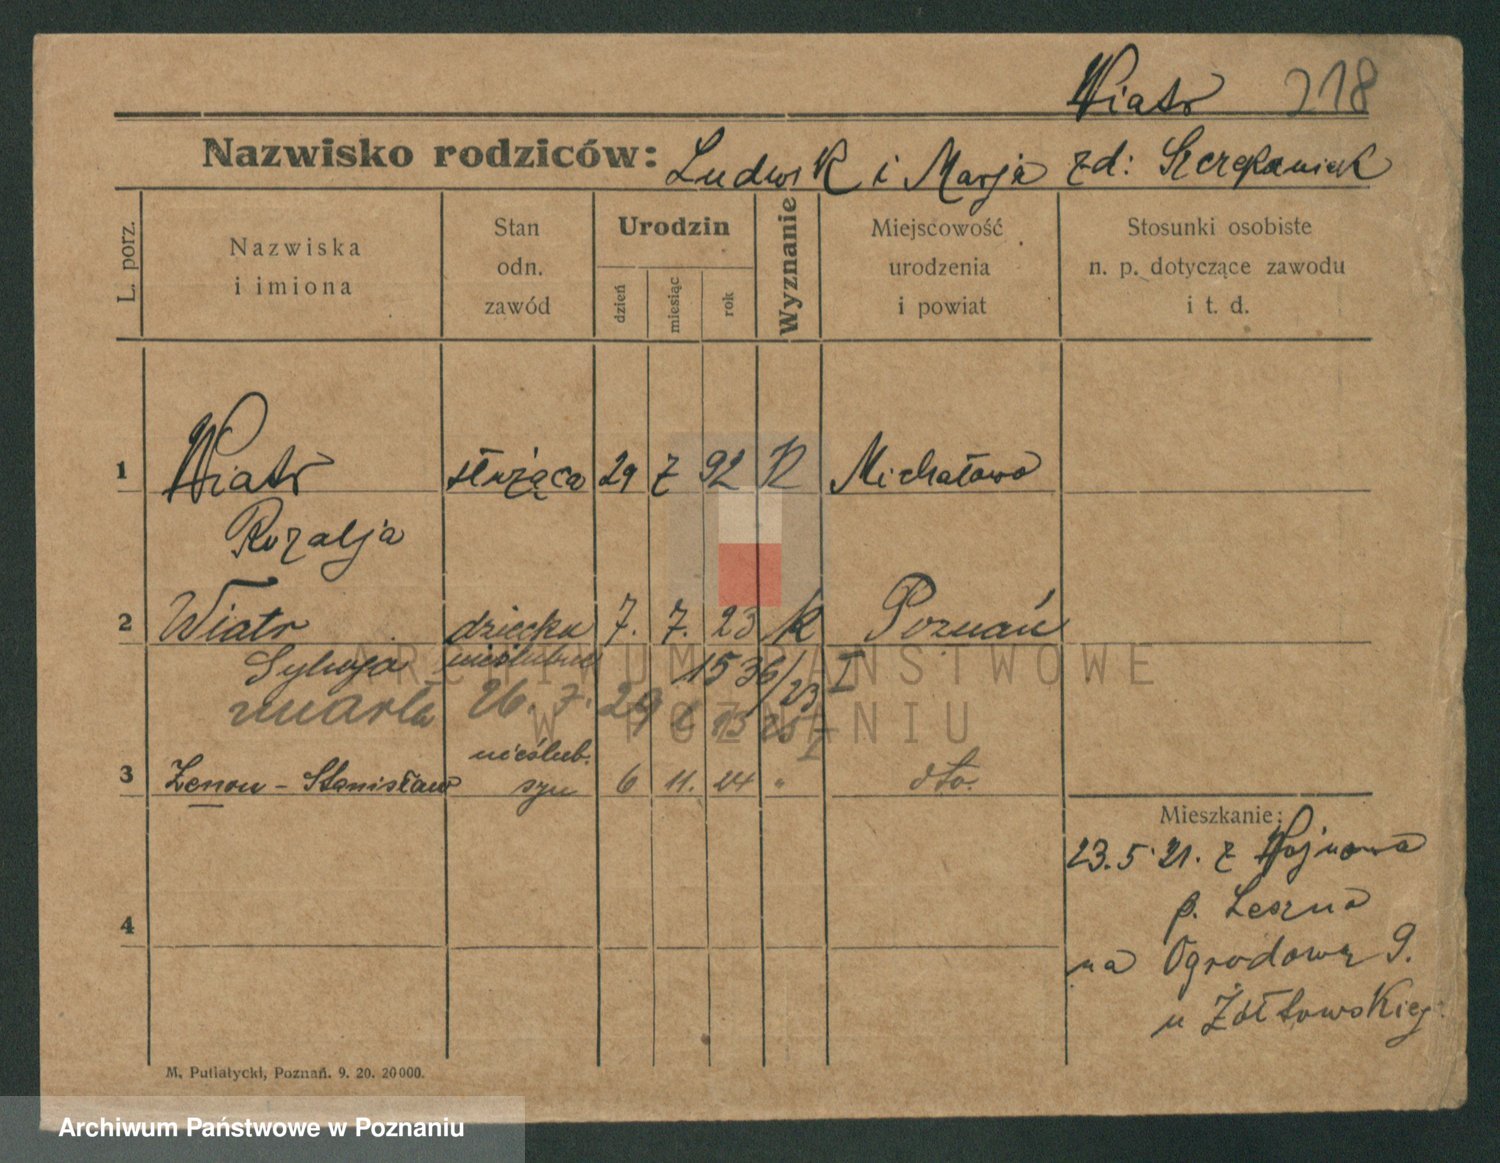 Wiatr 218
Nazwisko rodziców: Ludwik i Marja zd: Szczepaniak
L. porz.
Nazwiska
i imiona
Stan
odn.
zawód
Urodzin
dzień
miesiąc
rok
Wyznanie
Miejscowość
urodzenia
i powiat
Stosunki osobiste
n. p. dotyczące zawodu
i t. d.
1 Wiatr służąca 29 7 92 K Michałowo
Rozalja
2 Wiatr dziecko 7. 7. 23 K Poznań
Sylwja nieślubne 1536/23 I
zmarła 26. 7. 29
nieślub.
3 Zenon - Stanisław syn 6 11. 24 " dto.
Mieszkanie:
23.5.21. z Wojnowa
p. Leszno
4
na Ogrodową 9.
u Żółtowskiej
M. Putiatycki, Poznań. 9. 20. 20000.
ARCHIWUM PAŃSTWOWE
W POZNANIU
Archiwum Państwowe w Poznaniu